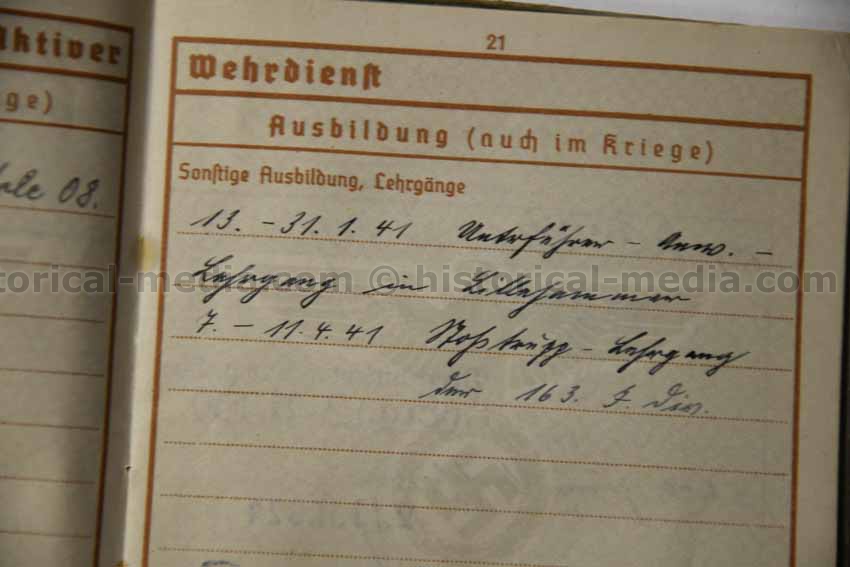 aktiver
ge)
le 08.
21
Wehrdienst
Ausbildung (auch im Kriege)
Sonstige Ausbildung, Lehrgänge
13. – 31. 1. 41 Unterführer – Anw. –
Lehrgang in Lillehammer
historical-media.com © historical-media.com
7. – 11. 4. 41 Stoßtrupp – Lehrgang
der 163. I. Div.